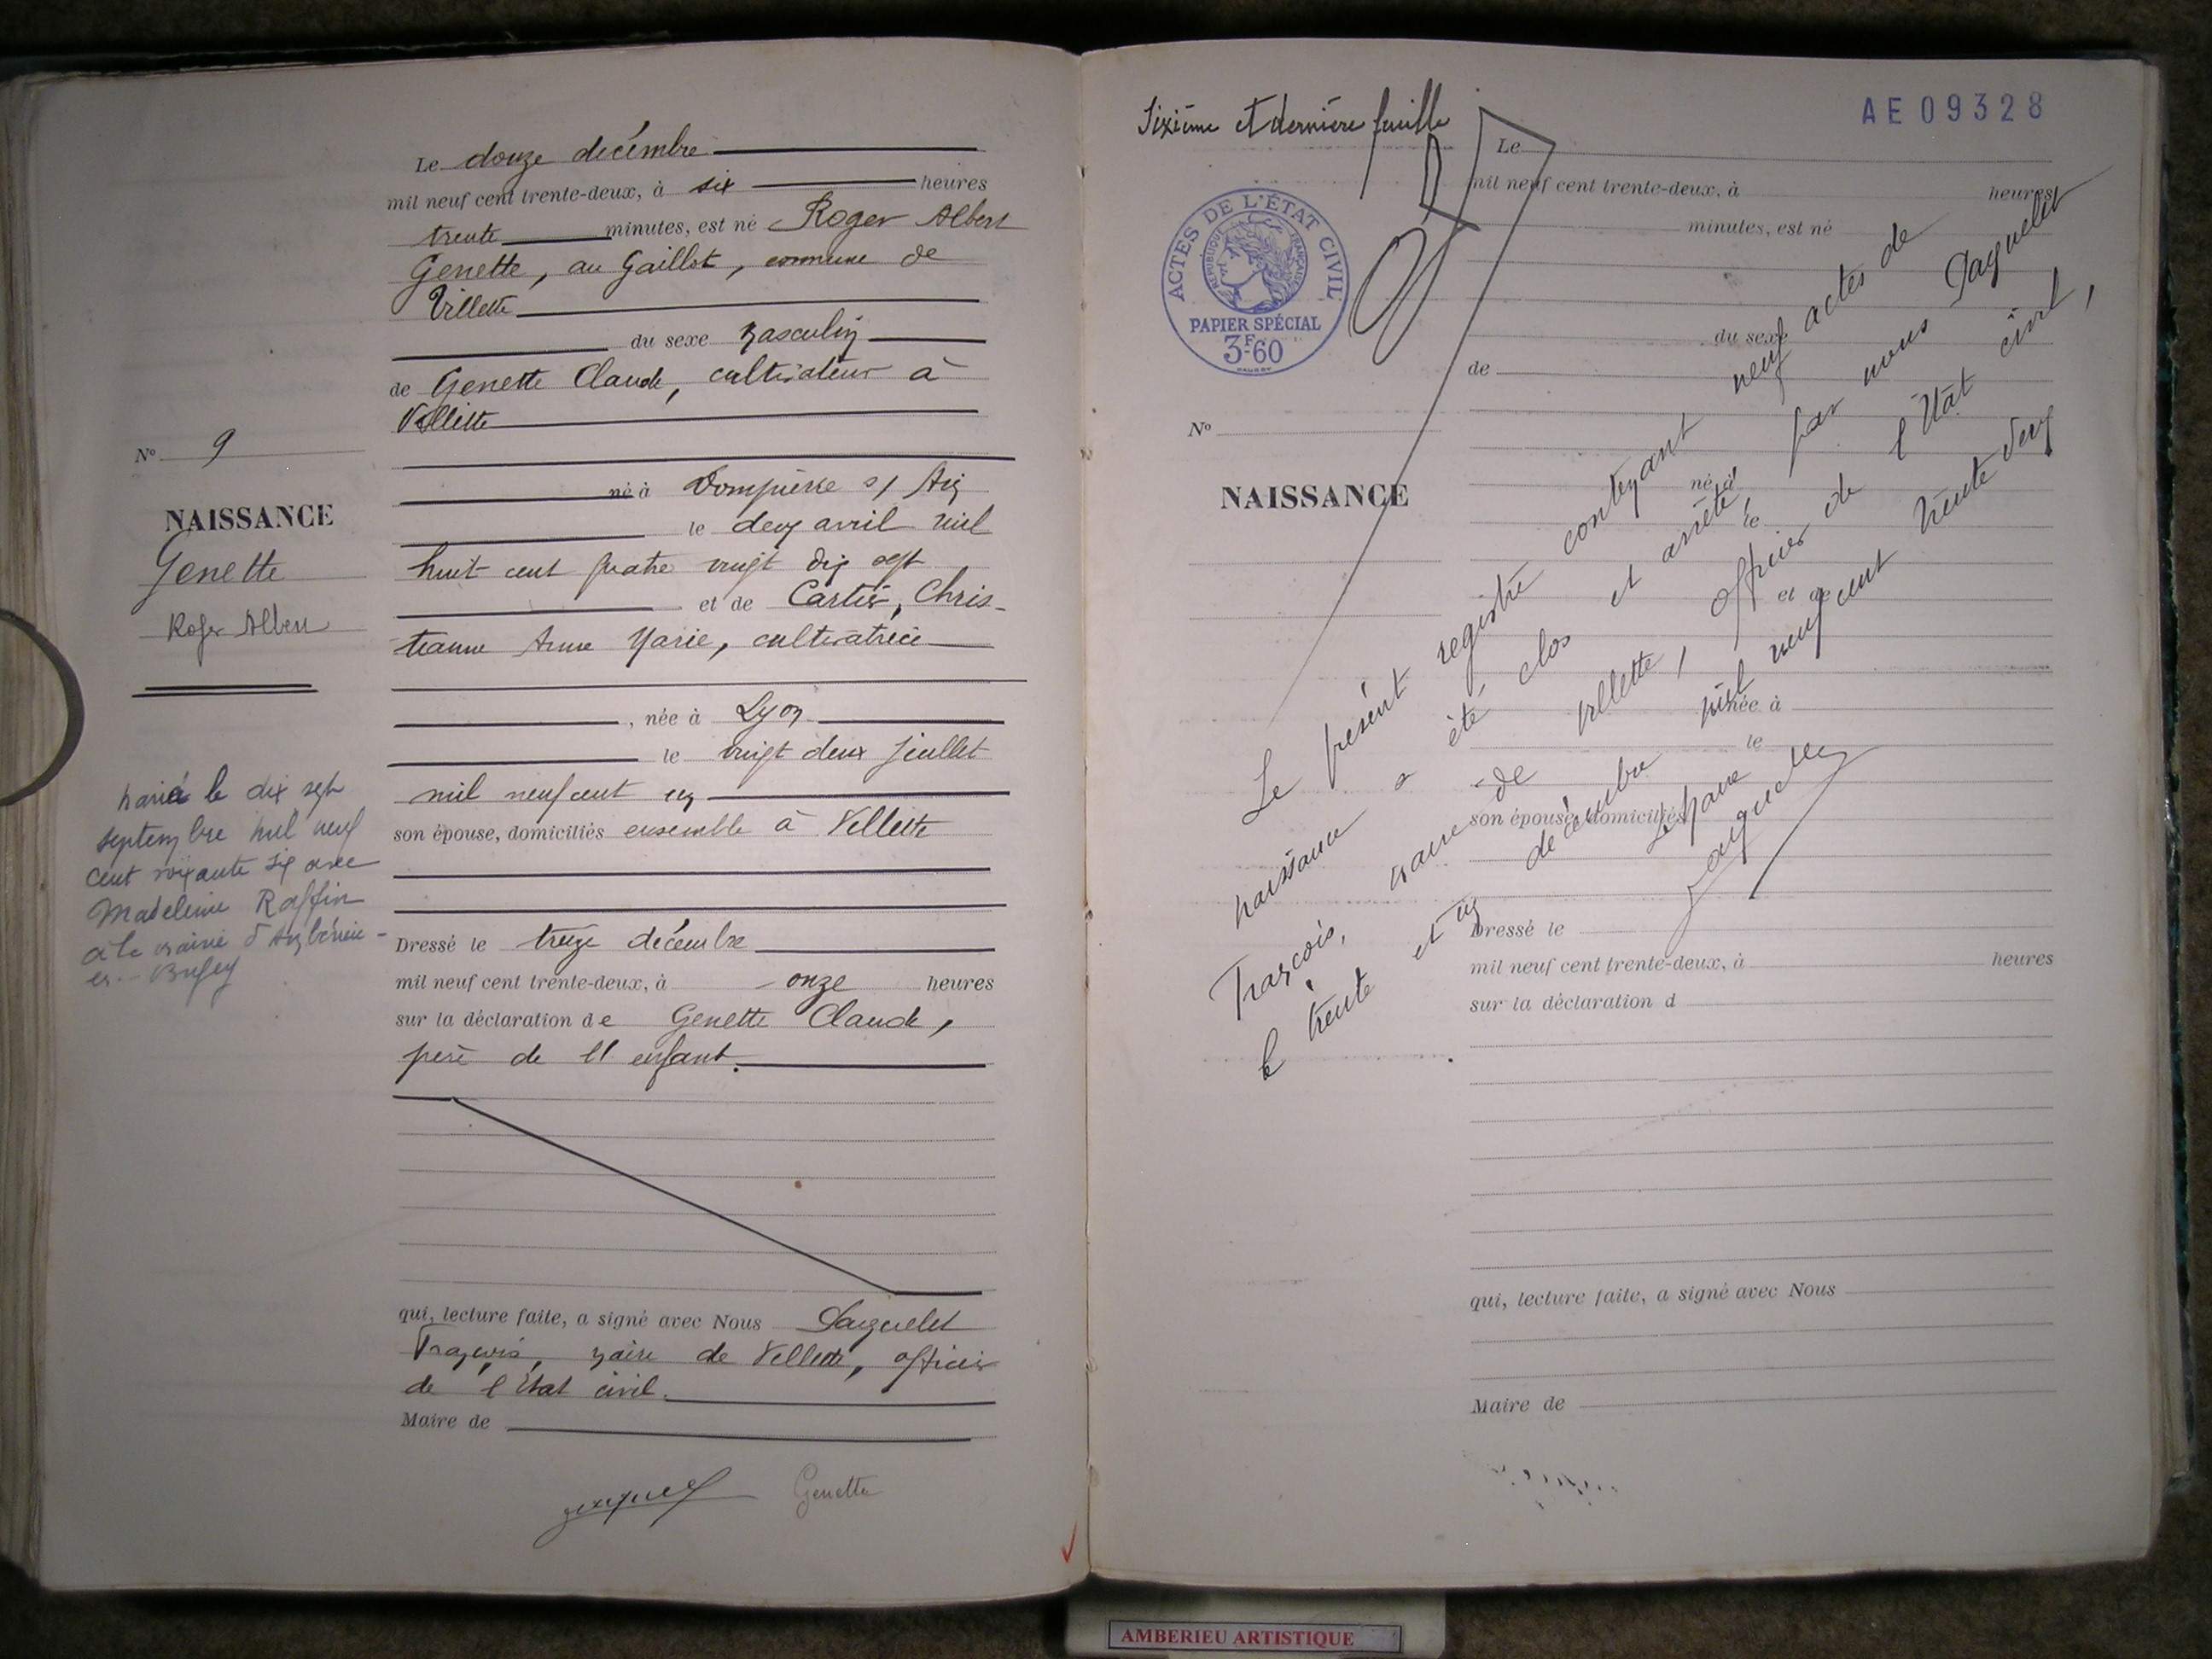 Le douze décembre
mil neuf cent trente-deux, à six heures
trente minutes, est né Roger Albert
Genette, au Gaillot, commune de
Villette
du sexe masculin
de Genette Claude, cultivateur à
Villette
né à Dompierre s/ Ain
le deux avril mil
huit cent quatre vingt dix sept
et de Cartier, Chris-
tianne Anne Marie, cultivatrice
, née à Lyon
le vingt deux juillet
mil neuf cent un
son épouse, domiciliés ensemble à Villette
Dressé le treize décembre
mil neuf cent trente-deux, à onze heures
sur la déclaration de Genette Claude,
père de l'enfant.
qui, lecture faite, a signé avec Nous
François, maire de Villette, officier
de l'État civil.
Maire de
Genette
N° 9
NAISSANCE
Genette
Roger Albert
Marié le dix sept
septembre mil neuf
cent soixante six avec
Madeleine Raffin
à la mairie d'Ambérieu-
en-Bugey
Sixième et dernière feuille
AE 09328
ACTES DE L'ÉTAT CIVIL
RÉPUBLIQUE FRANÇAISE
PAPIER SPÉCIAL
3F60
N°
NAISSANCE
Le
mil neuf cent trente-deux, à heures
minutes, est né
du sexe
de
né à
le
et de
née à
le
son épouse, domiciliés
Dressé le
mil neuf cent trente-deux, à heures
sur la déclaration d
qui, lecture faite, a signé avec Nous
Maire de
Le présent registre contenant neuf actes de
naissance a été clos et arrêté par nous
François, maire de Villette, officier de l'État civil,
le trente et un décembre mil neuf cent trente deux
Le Maire
AMBERIEU ARTISTIQUE